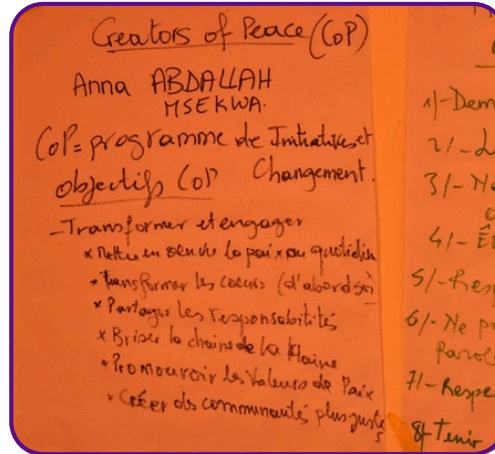 Creators of Peace (CoP)
Anna ABDALLAH
MSEKWA.
CoP = programme de Initiatives et
Changement.
objectifs CoP
- Transformer et engager
* Mettre en œuvre la paix au quotidien
* Transformer les coeurs (d'abord soi)
* Partager les responsabilités
* Briser la chaine de la Haine
* Promouvoir les Valeurs de Paix
* Créer des communautés plus justes
1/- Dem
2/-
3/- No
4/- Êt
5/- Resp
6/- Ne p
Parol
7/- Respe
8/- Tenir